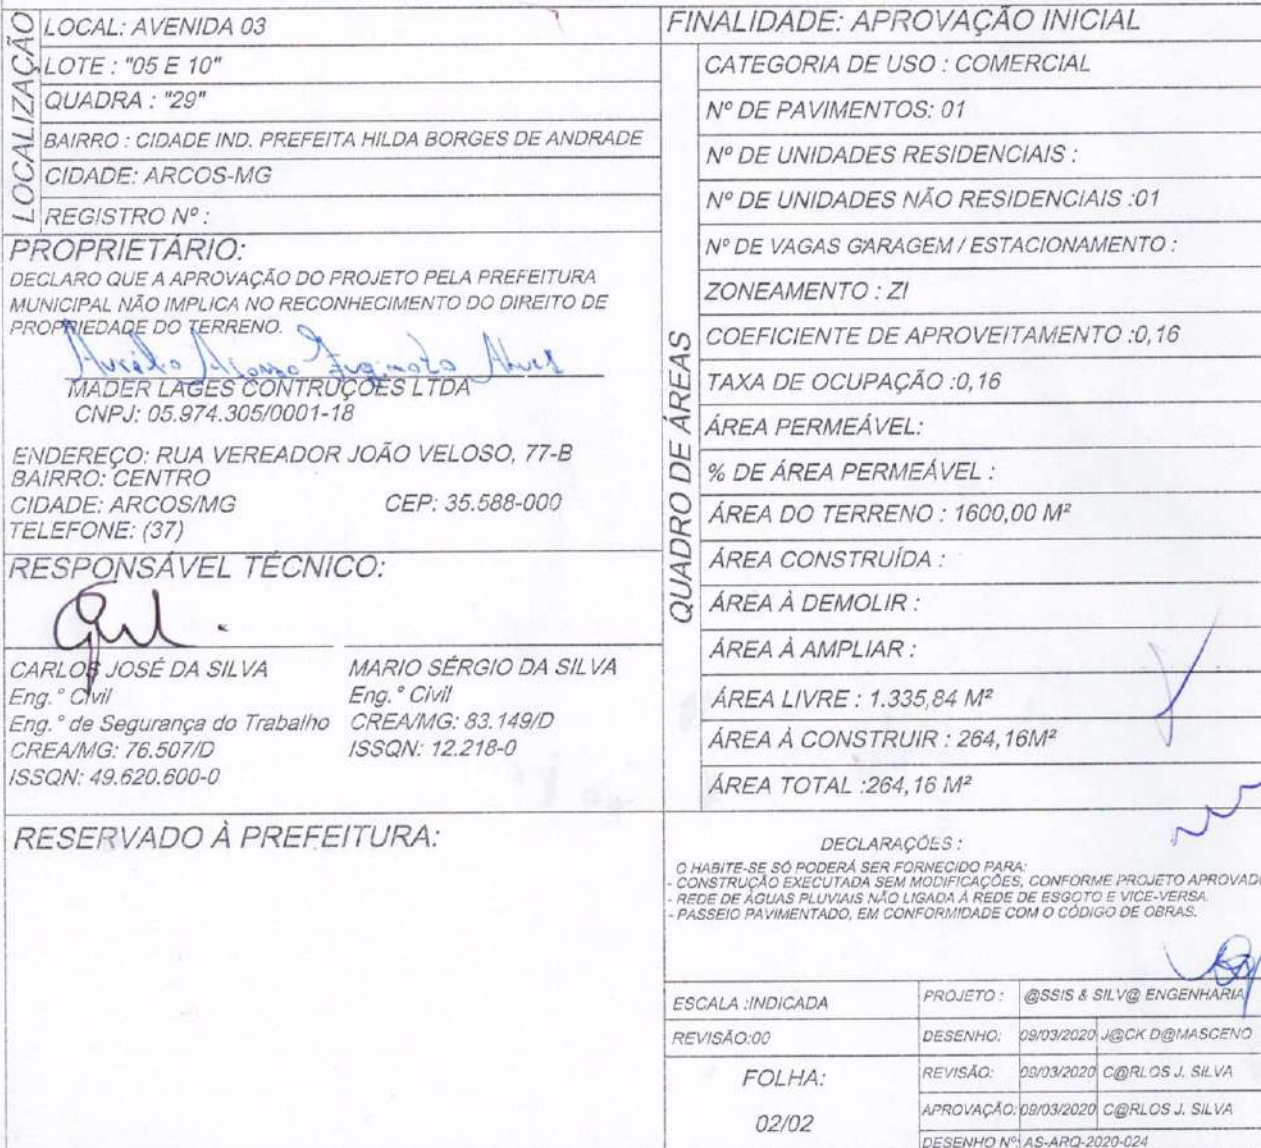 LOCALIZAÇÃO
LOCAL: AVENIDA 03
LOTE : "05 E 10"
QUADRA : "29"
BAIRRO : CIDADE IND. PREFEITA HILDA BORGES DE ANDRADE
CIDADE: ARCOS-MG
REGISTRO Nº :
PROPRIETÁRIO:
DECLARO QUE A APROVAÇÃO DO PROJETO PELA PREFEITURA
MUNICIPAL NÃO IMPLICA NO RECONHECIMENTO DO DIREITO DE
PROPRIEDADE DO TERRENO.
MADER LAGES CONTRUÇÕES LTDA
CNPJ: 05.974.305/0001-18
ENDEREÇO: RUA VEREADOR JOÃO VELOSO, 77-B
BAIRRO: CENTRO
CIDADE: ARCOS/MG CEP: 35.588-000
TELEFONE: (37)
RESPONSÁVEL TÉCNICO:
CARLOS JOSÉ DA SILVA
Eng.° Civil
Eng.° de Segurança do Trabalho
CREA/MG: 76.507/D
ISSQN: 49.620.600-0
MARIO SÉRGIO DA SILVA
Eng.° Civil
CREA/MG: 83.149/D
ISSQN: 12.218-0
RESERVADO À PREFEITURA:
FINALIDADE: APROVAÇÃO INICIAL
QUADRO DE ÁREAS
CATEGORIA DE USO : COMERCIAL
Nº DE PAVIMENTOS: 01
Nº DE UNIDADES RESIDENCIAIS :
Nº DE UNIDADES NÃO RESIDENCIAIS :01
Nº DE VAGAS GARAGEM / ESTACIONAMENTO :
ZONEAMENTO : ZI
COEFICIENTE DE APROVEITAMENTO :0,16
TAXA DE OCUPAÇÃO :0,16
ÁREA PERMEÁVEL:
% DE ÁREA PERMEÁVEL :
ÁREA DO TERRENO : 1600,00 M²
ÁREA CONSTRUÍDA :
ÁREA À DEMOLIR :
ÁREA À AMPLIAR :
ÁREA LIVRE : 1.335,84 M²
ÁREA À CONSTRUIR : 264,16M²
ÁREA TOTAL :264,16 M²
DECLARAÇÕES :
O HABITE-SE SÓ PODERÁ SER FORNECIDO PARA:
- CONSTRUÇÃO EXECUTADA SEM MODIFICAÇÕES, CONFORME PROJETO APROVADO
- REDE DE ÁGUAS PLUVIAIS NÃO LIGADA À REDE DE ESGOTO E VICE-VERSA.
- PASSEIO PAVIMENTADO, EM CONFORMIDADE COM O CÓDIGO DE OBRAS.
ESCALA :INDICADA
REVISÃO:00
FOLHA:
02/02
PROJETO : @SSIS & SILV@ ENGENHARIA
DESENHO: 09/03/2020 J@CK D@MASCENO
REVISÃO: 09/03/2020 C@RLOS J. SILVA
APROVAÇÃO: 09/03/2020 C@RLOS J. SILVA
DESENHO Nº: AS-ARQ-2020-024